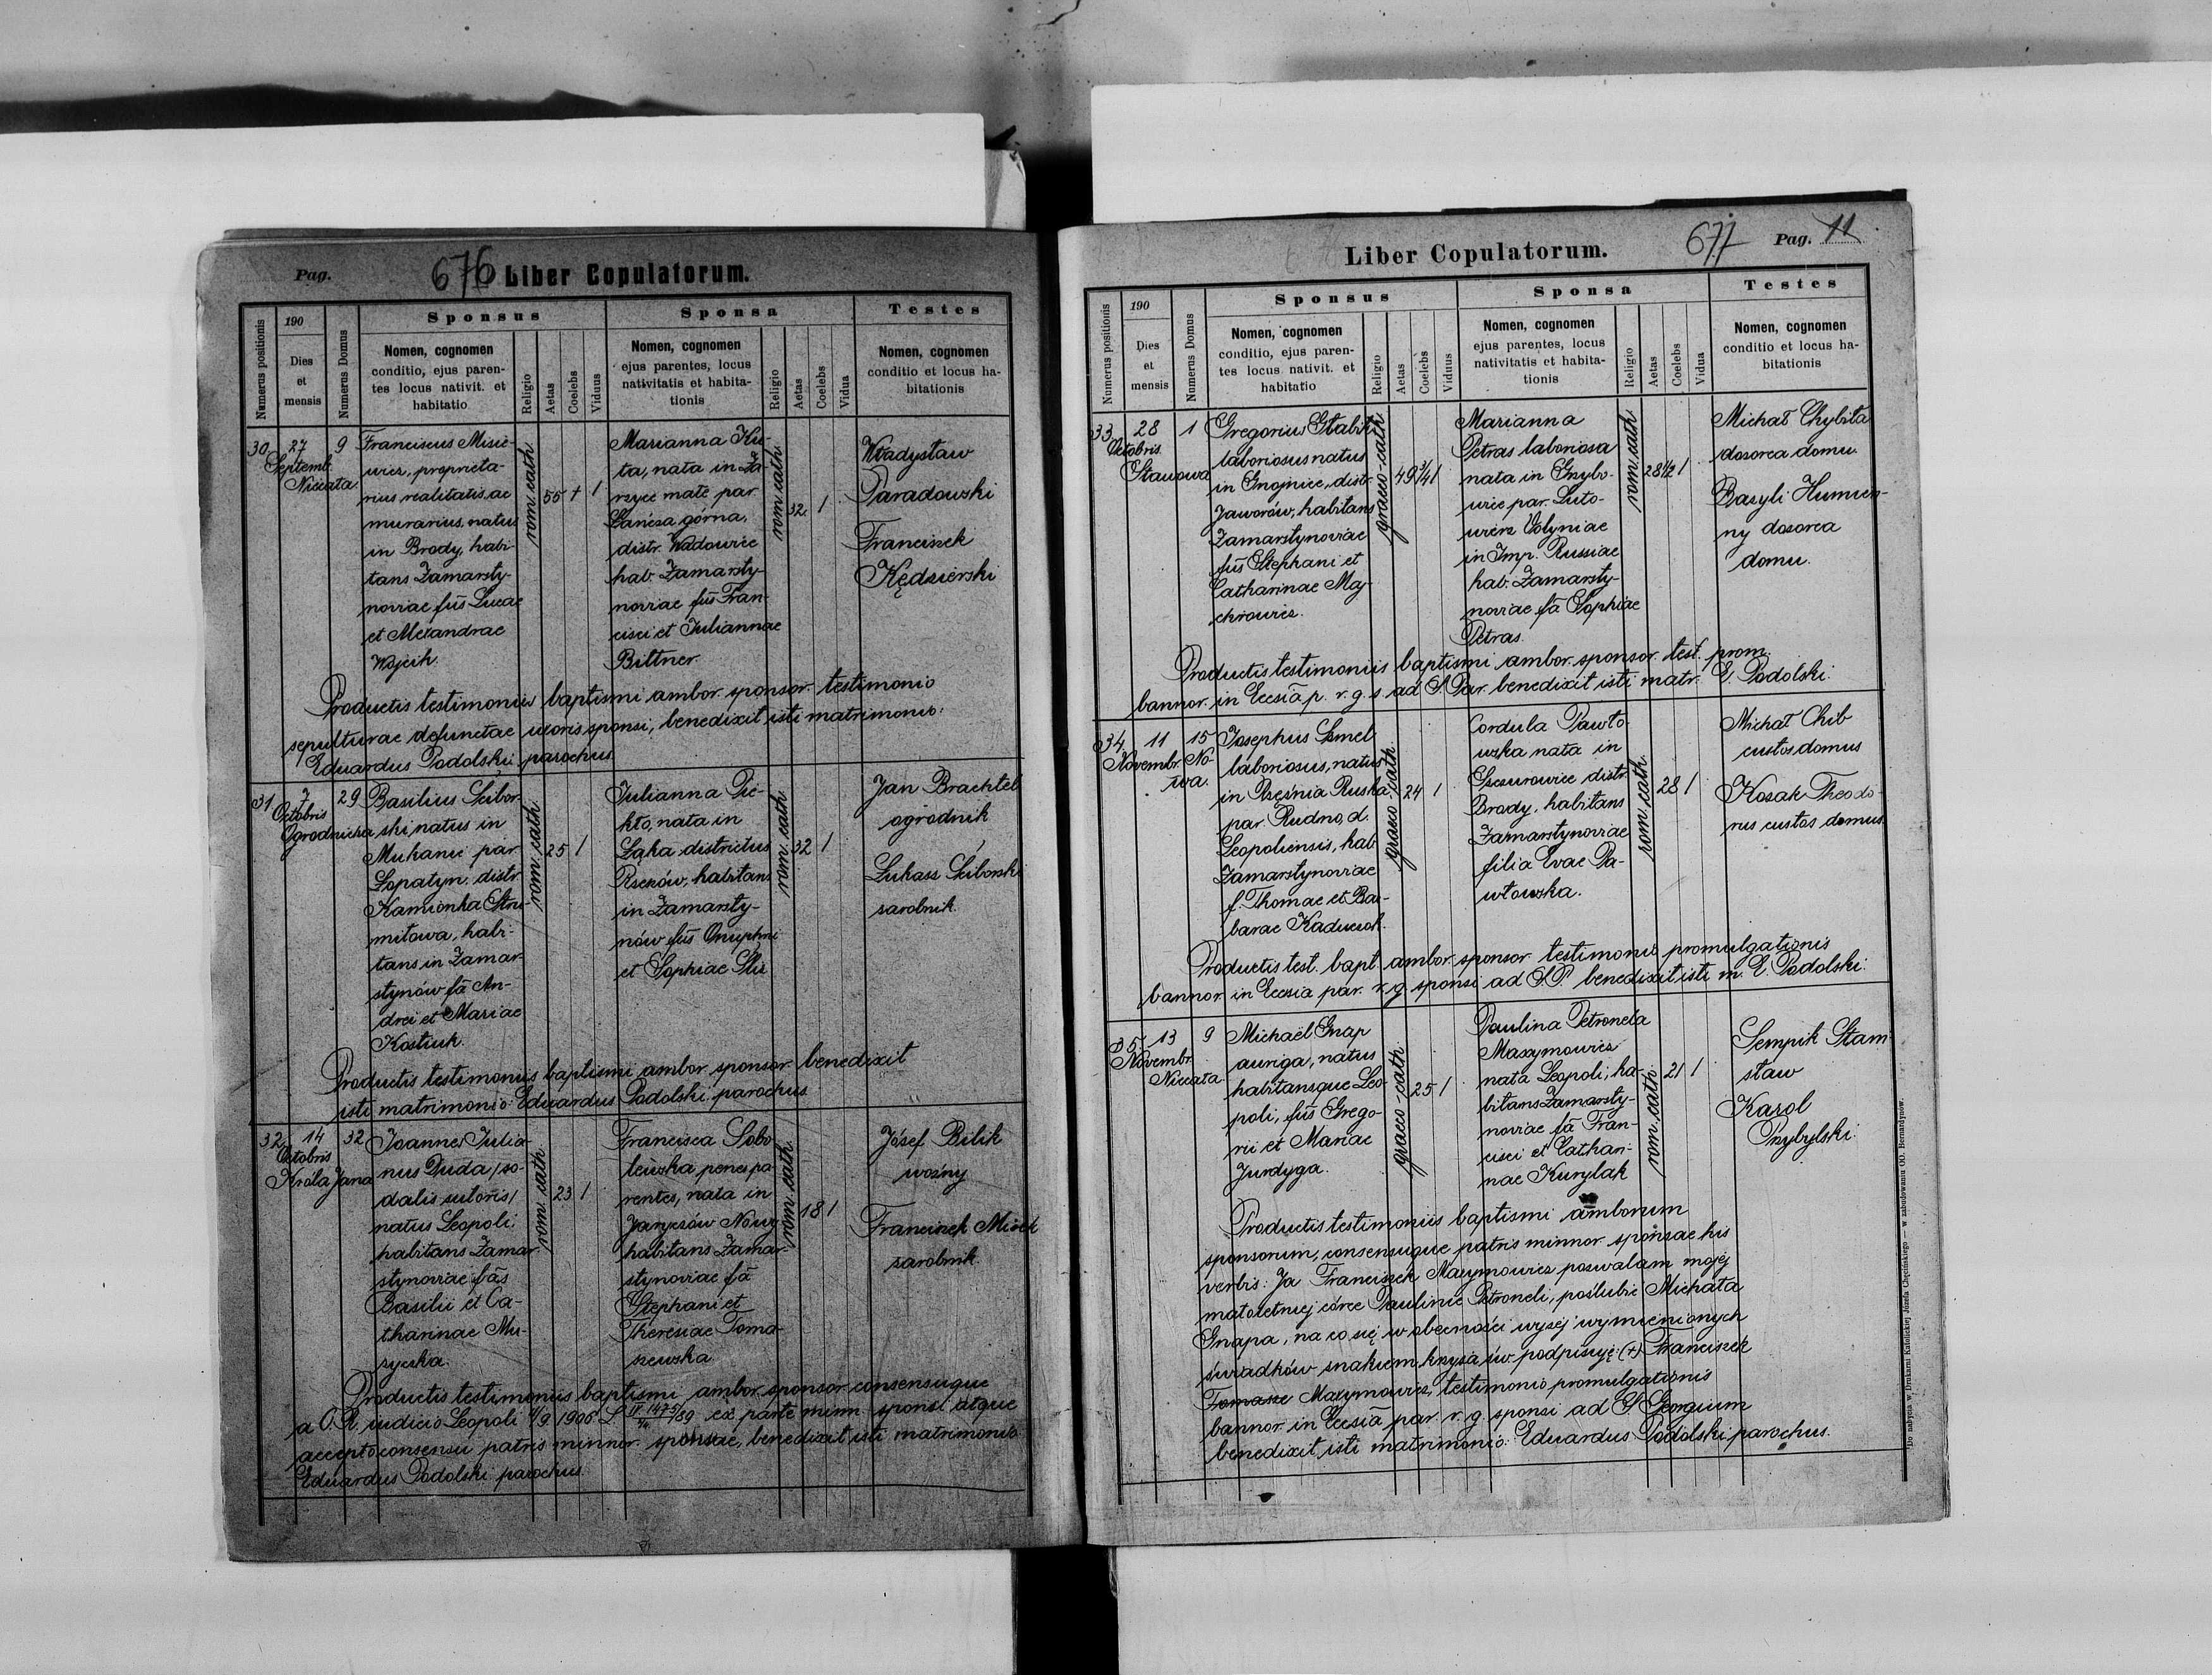 Pag.
676 Liber Copulatorum.
Numerus positionis
190
Dies
et
mensis
Numerus Domus
Sponsus
Nomen, cognomen
conditio, ejus paren-
tes locus nativit. et
habitatio
Religio
Aetas
Coelebs
Viduus
Sponsa
Nomen, cognomen
ejus parentes, locus
nativitatis et habita-
tionis
Religio
Aetas
Coelebs
Vidua
Testes
Nomen, cognomen
conditio et locus ha-
bitationis
30.
27
Septemb.
Niecała
9
Franciscus Misie-
wicz, proprieta-
rius realitatis ac
murarius, natus
in Brody, habi-
tans Zamarsty-
noviae fūs Lucae
et Alexandrae
Wojcih.
rom. cath.
55 + 1
Marianna Ku-
ta, nata in Za-
rzyce małe par.
Lańcza górna,
distr. Wadowice
hab. Zamarsty-
noviae fūs Fran-
cisci et Juliannae
Bittner
rom. cath.
32. 1
Władysław
Paradowski
Franciszek
Kędzierski
Productis testimoniis baptismi ambor. sponsor. testimonio
sepulturae defunctae uxoris sponsi, benedixit isti matrimonio:
Eduardus Podolski parochus
31
7
Octobris
Ogrodnicka
29
Basilius Ścibor-
ski natus in
Mukanie par.
Łopatyn, distr.
Kamionka Stru-
miłowa, habi-
tans in Zamar-
stynów fā An-
drei et Mariae
Kostiuk.
rom. cath.
25 1
Julianna Pie-
kło, nata in
Łąka districtus
Rzeszów, habitans
in Zamarsty-
nów fūs Onuphrii
et Sophiae Śliż
rom. cath.
32 1
Jan Brachtel
ogrodnik
Łukasz Ściborski
zarobnik.
Productis testimoniis baptismi ambor. sponsor. benedixit
isti matrimonio: Eduardus Podolski parochus
32.
14
Octobris
Króla Jana
32
Joannes Julia-
nus Duda /so-
dalis sutoris/
natus Leopoli,
habitans Zamar-
stynoviae fās
Basilii et Ca-
tharinae Mu-
zyczka.
rom. cath.
23 1
Francisca Sobo-
lewska penes pa-
rentes, nata in
Jaryczów Nowy
habitans Zamar-
stynoviae fā
Stephani et
Theresiae Toma-
szewska
rom. cath.
18 1
Józef Bilik
woźny
Franciszek Misek
zarobnik.
Productis testimoniis baptismi ambor. sponsor. consensuque
a C.R. iudicio Leopoli 4/9 1906 L. IV 1475/89 ex parte minn. sponsi atque
accepto consensu patris minnor. sponsae, benedixit isti matrimonio
Eduardus Podolski parochus
Liber Copulatorum.
677 Pag. 11
Numerus positionis
190
Dies
et
mensis
Numerus Domus
Sponsus
Nomen, cognomen
conditio, ejus paren-
tes locus nativit. et
habitatio
Religio
Aetas
Coelebs
Viduus
Sponsa
Nomen, cognomen
ejus parentes, locus
nativitatis et habita-
tionis
Religio
Aetas
Coelebs
Vidua
Testes
Nomen, cognomen
conditio et locus ha-
bitationis
33.
28
Octobris
Stawowa
1
Gregorius Stabik
laboriosus natus
in Gnojnice, distr.
Jaworów, habitans
Zamarstynoviae
fūs Stephani et
Catharinae May-
chrowicz.
graeco-cath.
49 3/4 1
Marianna
Petras laboriosa
nata in Grzybo-
wice par. Luto-
wierz Volyniae
in Imp. Russiae
hab. Zamarsty-
noviae fā Sophiae
Petras.
rom. cath.
28 1/2 1
Michał Chybita
dozorca domu.
Bazyli Humien-
ny dozorca
domu.
Productis testimoniis baptismi ambor. sponsor. test. prom.
bannor. in Ecclsia p. r. g. s ad S. Par. benedixit isti matr. E. Podolski.
34.
11
Novembr.
15
No-
wa.
Josephus Szmel
laboriosus, natus
in Rzęśnia Ruska,
par. Rudno, d.
Leopoliensis, hab.
Zamarstynoviae
f. Thomae et Bar-
barae Kaduczok.
graeco cath.
24 1
Cordula Pawło-
wska nata in
Szczurowice distr.
Brody, habitans
Zamarstynoviae
filia Evae Pa-
włowska.
rom. cath.
28 1
Michał Chib
custos domus
Kozak Theodo-
rus custos domus.
Productis test. bapt. ambor. sponsor. testimonio promulgationis
bannor. in Ecclsia par. r. g. sponsi ad S.P. benedixit isti m. E. Podolski.
35.
13
Novembr.
Niecała
9
Michaël Gnap
auriga, natus
habitansque Leo-
poli, fūs Grego-
rii et Mariae
Jurdyga.
graeco-cath.
25 1
Paulina Petronela
Maxymowicz
nata Leopoli, ha-
bitans Zamarsty-
noviae fā Fran-
cisci et Cathari-
nae Kurylak
rom. cath.
21 1
Sempik Stani-
sław
Karol
Przybylski.
Productis testimoniis baptismi amborum
sponsorum, consensuque patris minnor. sponsae his
verbis: Ja Franciszek Maxymowicz pozwalam mojej
małoletniej córce Paulinie Petroneli, poślubić Michała
Gnapa, na co się w obecności wyżej wymienionych
świadków znakiem krzyża św. podpisuję: (+) Franciszek
Tomasz Maxymowicz, testimonio promulgationis
bannor. in Ecclsia par. r. g. sponsi ad S. Georgium
benedixit isti matrimonio: Eduardus Podolski parochus.
Do nabycia w Drukarni Katolickiej Józefa Chęcińskiego — w zabudowaniu OO. Bernardynów.